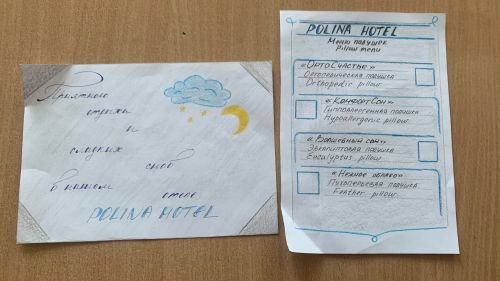 Приятного
отдыха
и
сладких
снов
в нашем
отеле
POLINA HOTEL
POLINA HOTEL
Меню подушек
Pillow menu
«ОртоСчастье»
Ортопедическая подушка
Orthopedic pillow
«КомфортСон»
Гипоаллергенная подушка
Hypoallergenic pillow
«Волшебный сон»
Эвкалиптовая подушка
Eucalyptus pillow
«Нежное облако»
Пухоперьевая подушка
Feather pillow